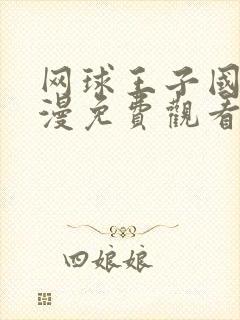 网球王子國
漫免費觀看
四娘娘